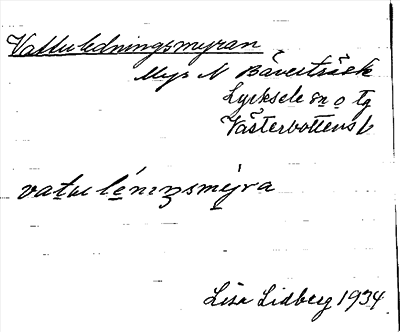 Vattuledningsmyran
Myr N Bäverträsk
Lycksele sn o tg
Västerbottens l
vatuléniŋsmýra
Lisa Lidberg 1934